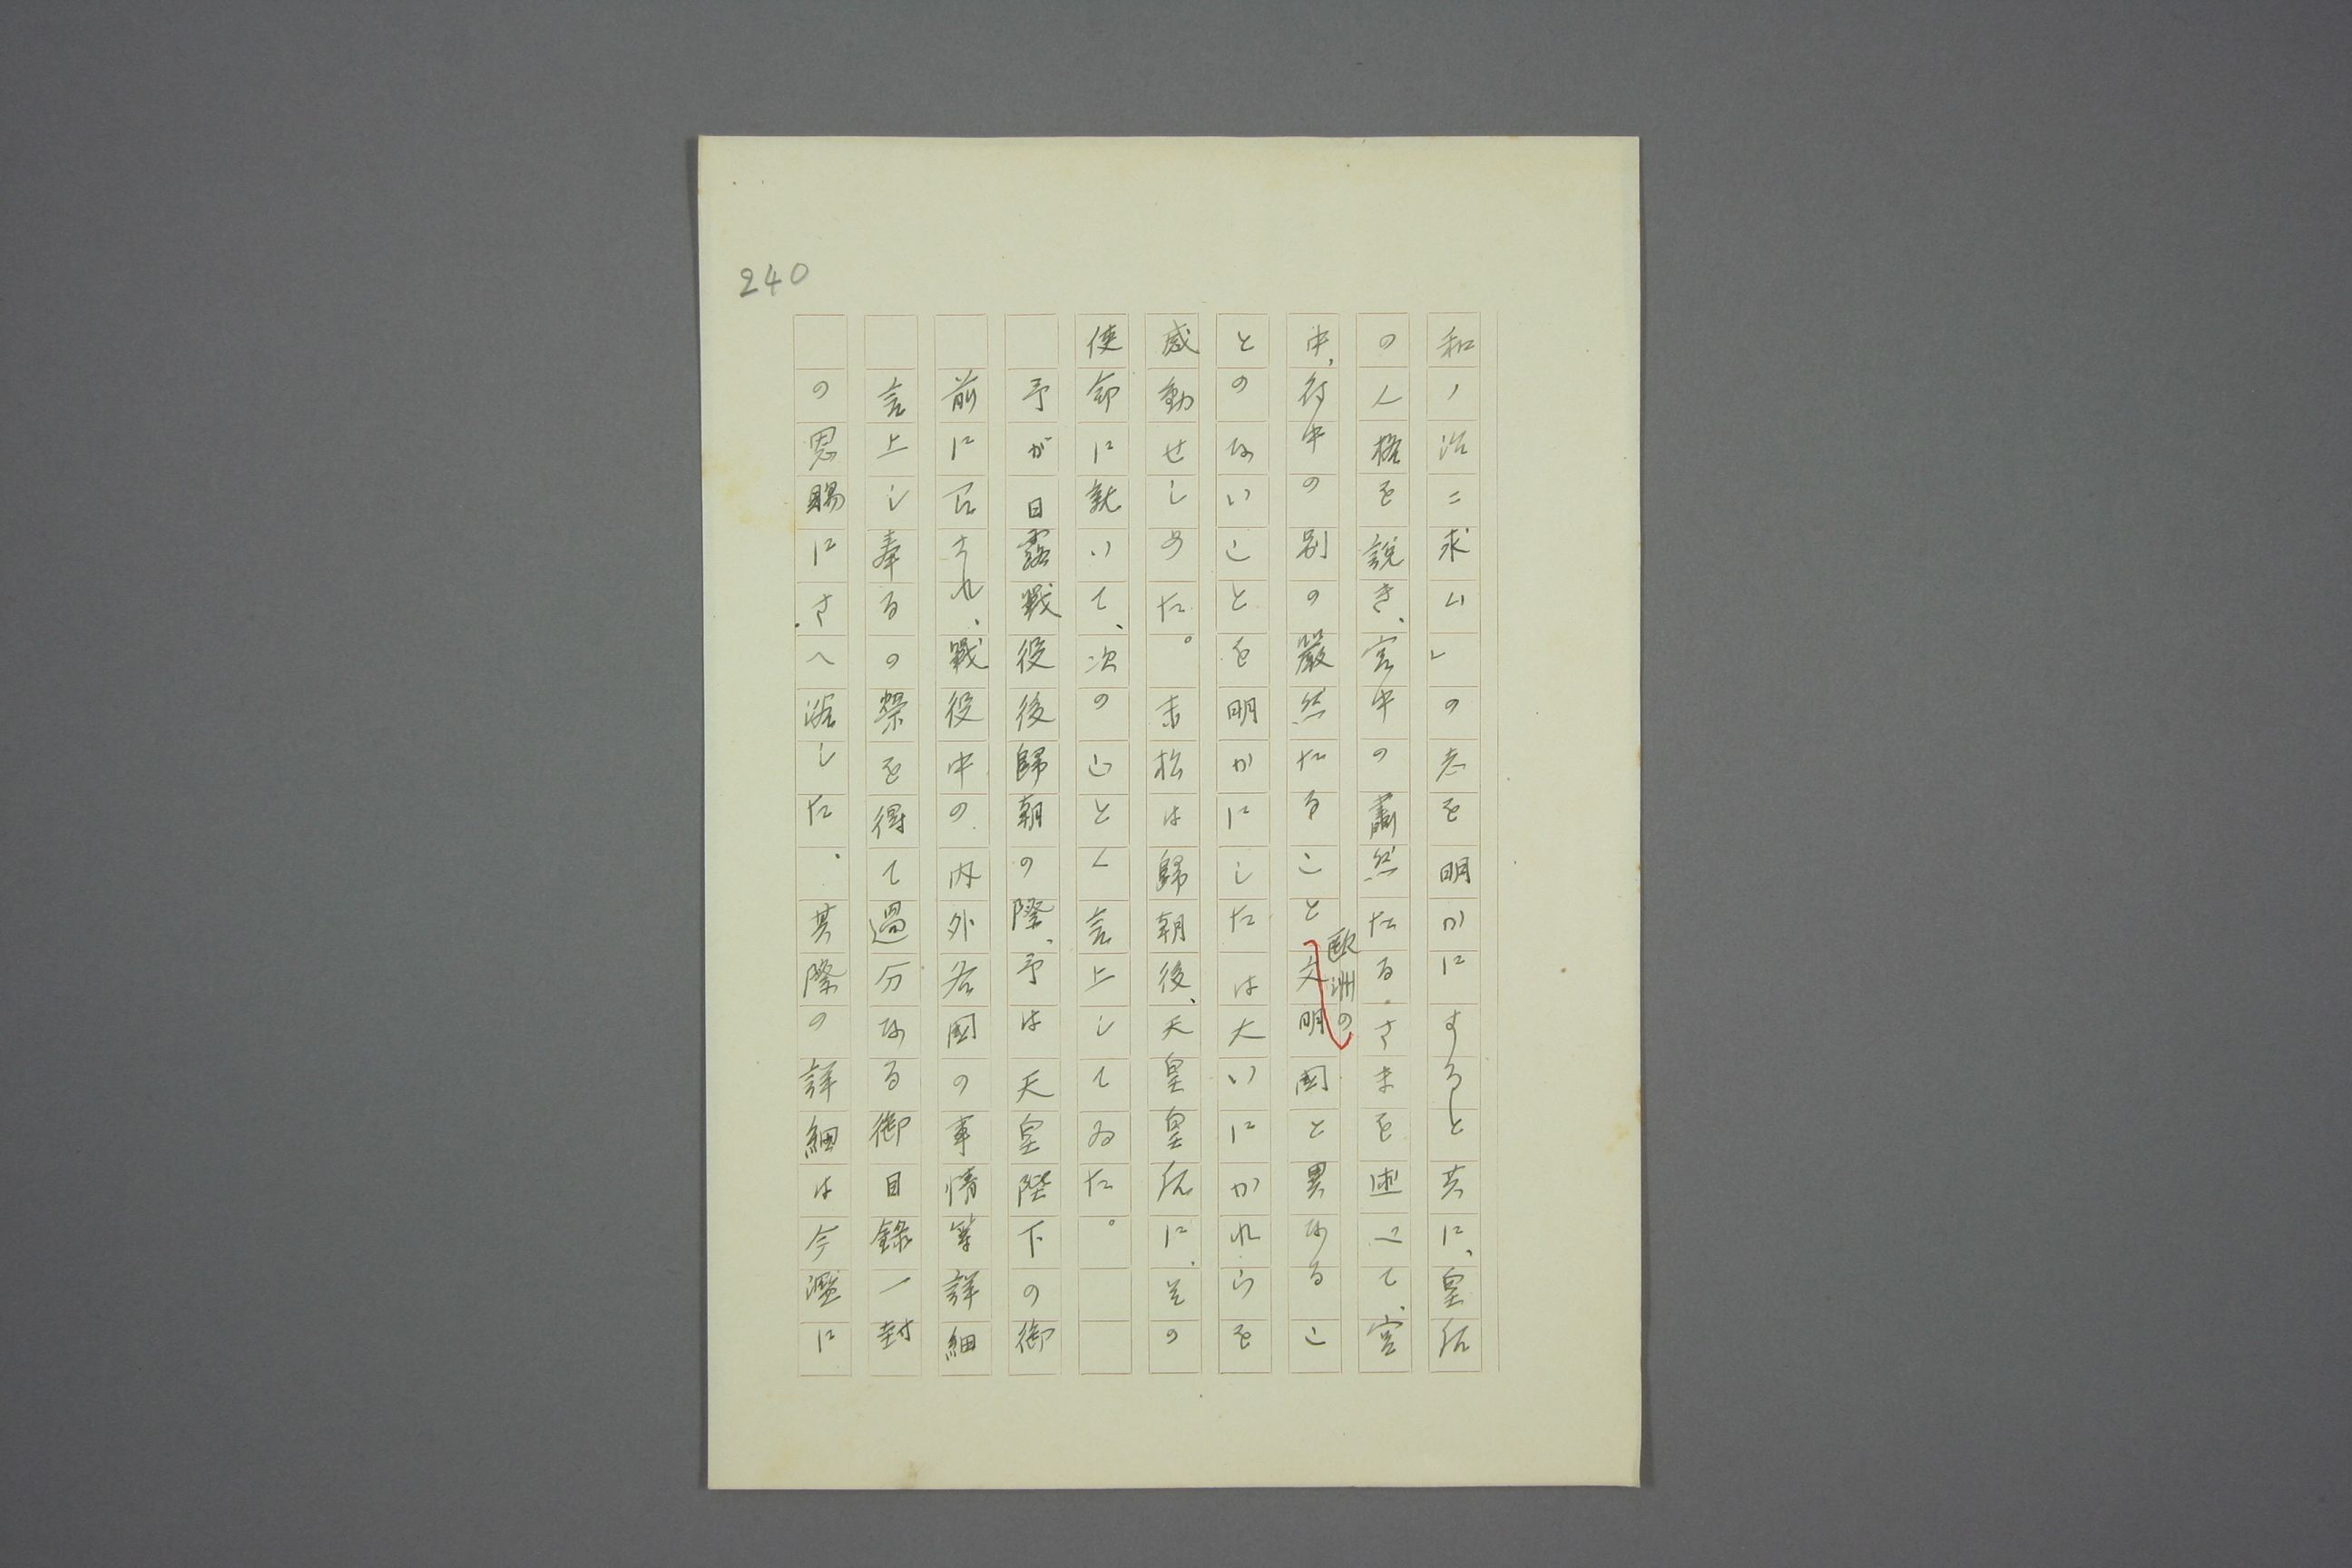 240
和ノ治ニ求ム」の志を明かにすると共に、皇后
の人格を説き、宮中の肅然たるさまを述べて、宮
中、府中の別の嚴然たること欧洲の文明国と異なるこ
とのないことを明かにしたは大いにかれらを
感動せしめた。末松は歸朝後、天皇皇后に、その
使命に就いて、次のごとく言上してゐた。
予が日露戰役後歸朝の際、予は天皇陛下の御
前に召され、戰役中の内外各國の事情等詳細
言上し奉るの榮を得て過分なる御目録一封
の恩賜にさへ浴した、其際の詳細は今濫に